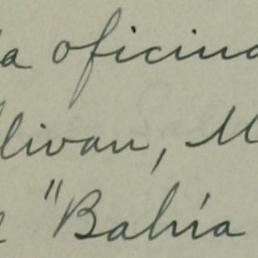 a oficina
llivan, M
"Bahía